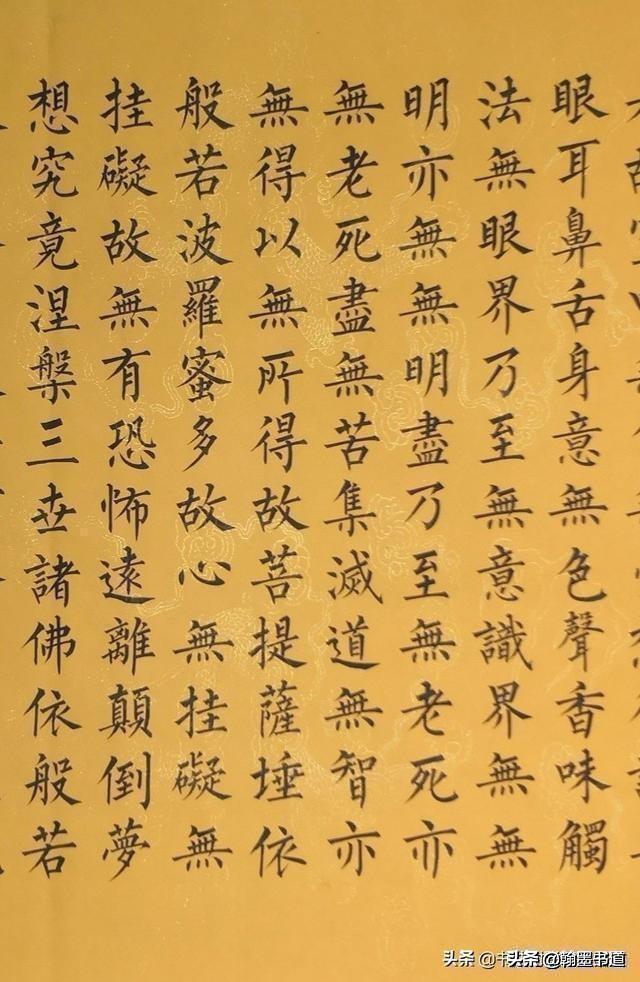 眼耳鼻舌身意無色聲香味觸
法無眼界乃至無意識界無無
明亦無無明盡乃至無老死亦
無老死盡無苦集滅道無智亦
無得以無所得故菩提薩埵依
般若波羅蜜多故心無挂礙無
挂礙故無有恐怖遠離顛倒夢
想究竟涅槃三世諸佛依般若
头条 @翰墨书道